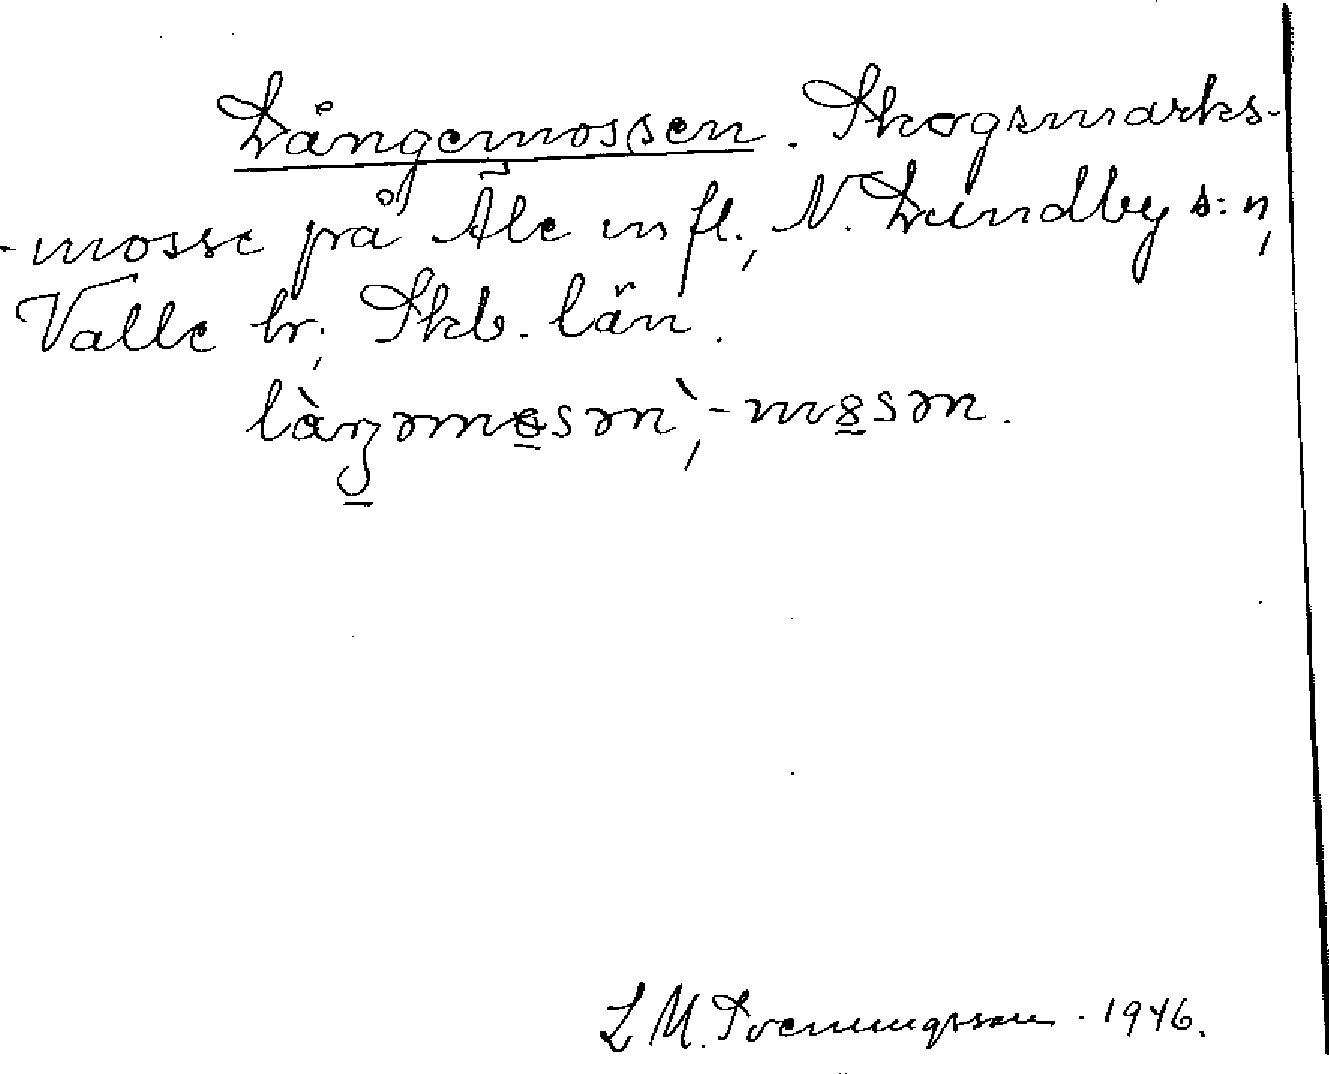 Långemossen. Skogsmarks-
-mosse på Åle m fl., N. Lundby s:n,
Valle hr, Skb. län.
làŋəmosən`, -mosən.
L M. Svenungsson. 1946.